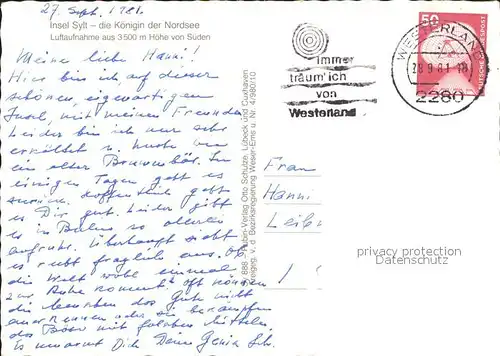 27. Sept. 1981.
Insel Sylt – die Königin der Nordsee
Luftaufnahme aus 3500 m Höhe von Süden
Meine liebe Hanni!
Hier bin ich auf dieser
schönen, eigenartigen
Insel, mit meinen Freunden
Leider bin ich nur sehr
erkältet u. huste wie
ein alter Brummbär. In
einigen Tagen geht es
zurück. Hoffentlich geht
es Dir gut. Leider gibt
es in Berlin so allerlei
Aufruhr. Überhaupt sieht
es recht fraglich aus. Ob
die Welt wohl einmal
zur Ruhe kommt? Oft können
die Menschen das Gute nicht
anerkennen oder sie bekämpfen
das Böse mit falschen Mitteln.
Es umarmt Dich Deine
immer
träum' ich
von
Westerland
WESTERLAND
28.9.81-18
2280
50
DEUTSCHE BUNDESPOST
888 Rubin-Verlag Otto Schulze, Lübeck und Cuxhaven
Freigeg. v. d. Bezirksregierung Weser-Ems u. Nr. 4/980/10
Frau
Hanni
privacy protection
Datenschutz